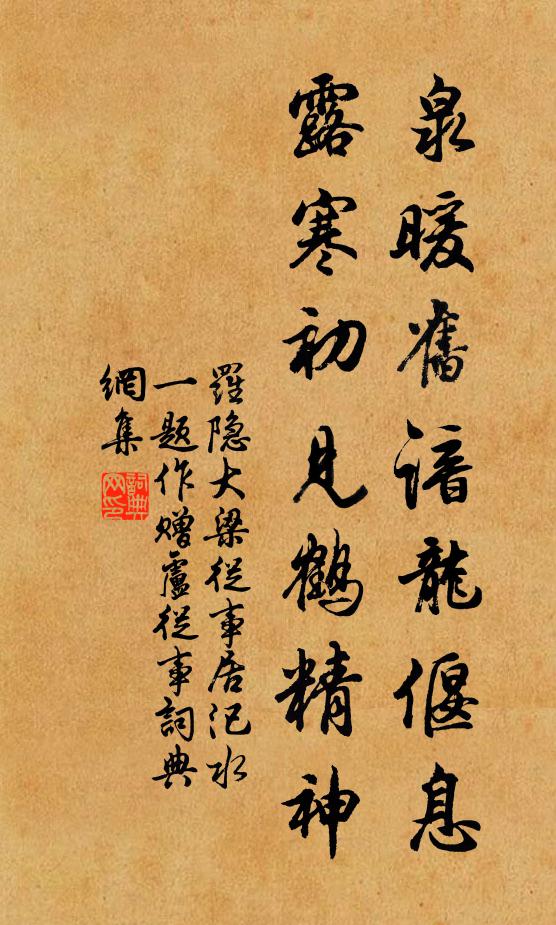 泉暖舊諳龍偃息
露寒初見鶴精神
羅隐大梁從事居汜水
一題作贈盧從事詞典
網集
詞典
网印